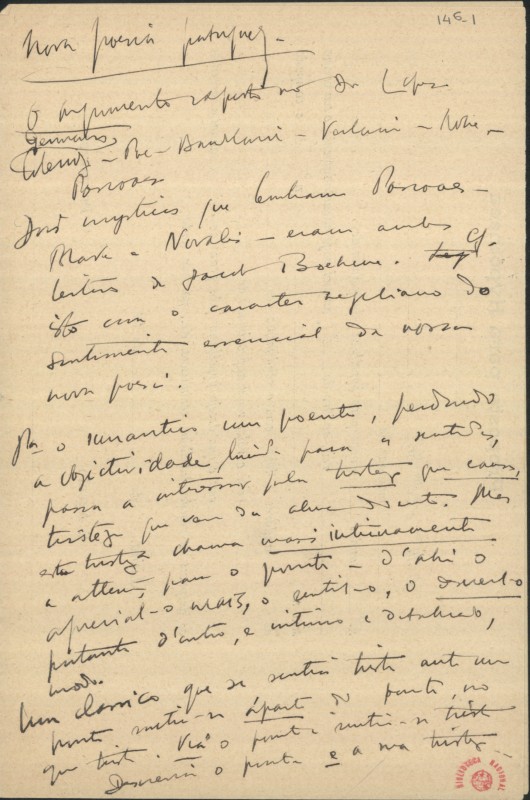 146-1
Nova poesia portugueza -
O argumento do Dr Lopes
Germanos,
- Poe - Baudelaire - Verlaine -
Pascoaes
Dois mysticos que lembram Pascoaes -
Blake e Novalis - eram ambos
leitores de Jacob Boehme. Cf.
isto com o caracter do
sentimento essencial da nossa
nova poesia.
Para o romantico um poente, perdendo
a objectividade para os sentidos,
passa a interessar pela tristeza que causa,
tristeza que vem da alma do ente. Mas
esta tristeza chama mais intimamente
a attenção para o poente - d'ahi o
aprecial-o mais, o sentil-o, o descrevel-o
portanto d'outro, e intimo e detalhado,
modo.
Um classico que se sentia triste ante um
poente sentia-se áparte do poente, no
que triste via o poente e sentia-se triste
Descrevia o poente e a sua tristeza
BIBLIOTECA NACIONAL